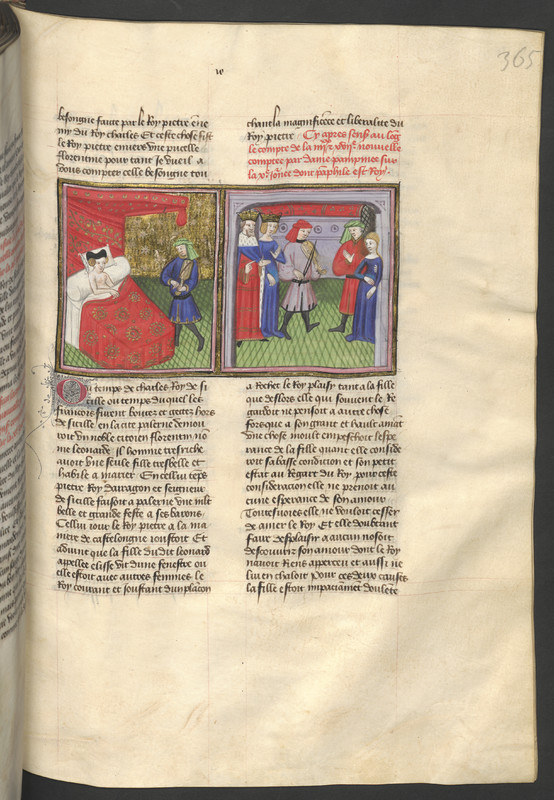 365
besongne faicte par le Roy pietre enne
my du Roy charles Et ceste chose fist
le Roy pietre envers vne pucelle
florentine pour tant Je vueil a
vous compter celle besongne tou
chant la magnificence et liberalite du
Roy pietre Cy apres sensuit au long
le compte de la nouuelle
comptee par dame pampinee sur
la Journee dont paphile est Roy.
Ou temps de charles Roy de si
cille ou temps duquel les
francois furent boutez et gettez hors
de sicille en la cite palerne demou
roit vn noble citoien florentin nom
me leonarde Il homme tresriche
auoit vne seule fille tresbelle et
habile a marier En cellui temps
pietre Roy darragon et seigneur
de sicille faisoit a palerne vne moult
belle et grande feste a ses barons
Cellui iour le Roy pietre a la ma
niere de castelongne ioustoit Et
aduint que la fille dudit leonard
appellee elisse vit dune fenestre ou
elle estoit auec autres femmes le
Roy courant et ioustant dun planson
a Rochet le Roy plaisy tant a la fille
que deslors elle qui souuent le Re
gardoit ne pensoit a autre chose
fors que a son grant et hault amour
vne chose moult empeschoit lespe
rance de la fille quant elle conside
roit sa basse condicion et son petit
estat au Regart du Roy pour ceste
consideracion elle ne prenoit au
cune esperance de son amour
Toutesuoies elle ne vouloit cesser
de amer le Roy Et elle doubtant
faire desplaisir a aucun nosoit
descouurir son amour dont le Roy
nauoit Riens apperceu et aussi ne
lui en chaloit Pour ces deux causes
la fille estoit impaciamment doulente